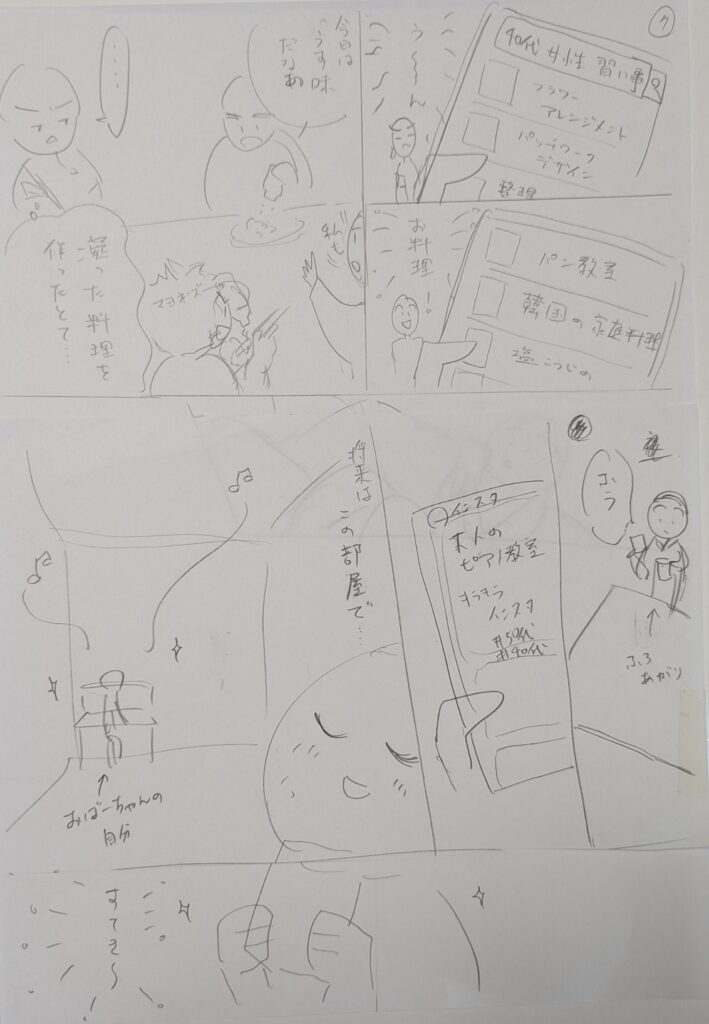 7
40代 女性 習い事
フラワー
アレンジメント
パッチワーク
デザイン
整理
う〜〜ん
パン教室
韓国の家庭料理
塩こうじの
お料理!
今日は
うす味
だなあ
……
私も
マヨネーズ
凝った料理を
作ったとて…
ふう
ふろ
あがり
インスタ
大人の
ピアノ教室
キラキラ
インスタ
#50代
#40代
将来は
この部屋で…
おばーちゃんの
自分
すてき〜